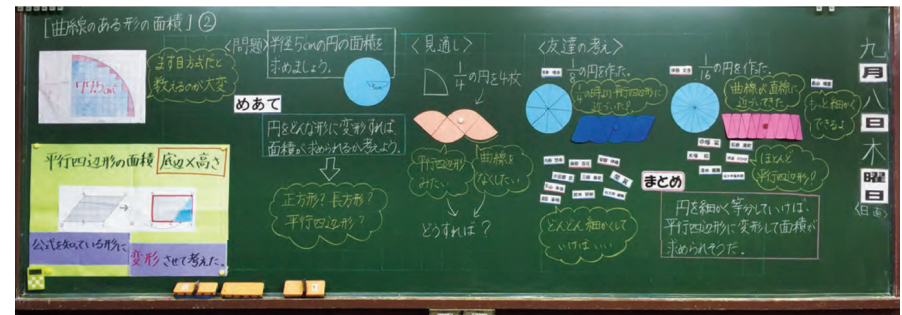 [曲線のある形の面積]②
ます目方式だと
数えるのが大変
平行四辺形の面積 底辺×高さ
公式を知っている形に
変形させて考えた。
〈問題〉
半径5cmの円の面積を
求めましょう。
めあて
円をどんな形に変形すれば、
面積が求められるか考えよう。
正方形?長方形?
平行四辺形?
〈見通し〉
1/4の円を4枚
平行四辺形
みたい
曲線を
なくしたい
どうすれば?
〈友達の考え〉
1/8の円を作った。
1/4の時より平行四辺形に
近づいた!
どんどん細かくして
いけばいい
1/16の円を作った。
曲線が直線に
近づいてきた
もっと細かく
できるよ
ほとんど
平行四辺形!
まとめ
円を細かく等分していけば、
平行四辺形に変形して面積が
求められそうだ。
九
月
八
日
木
曜
日
(日直)